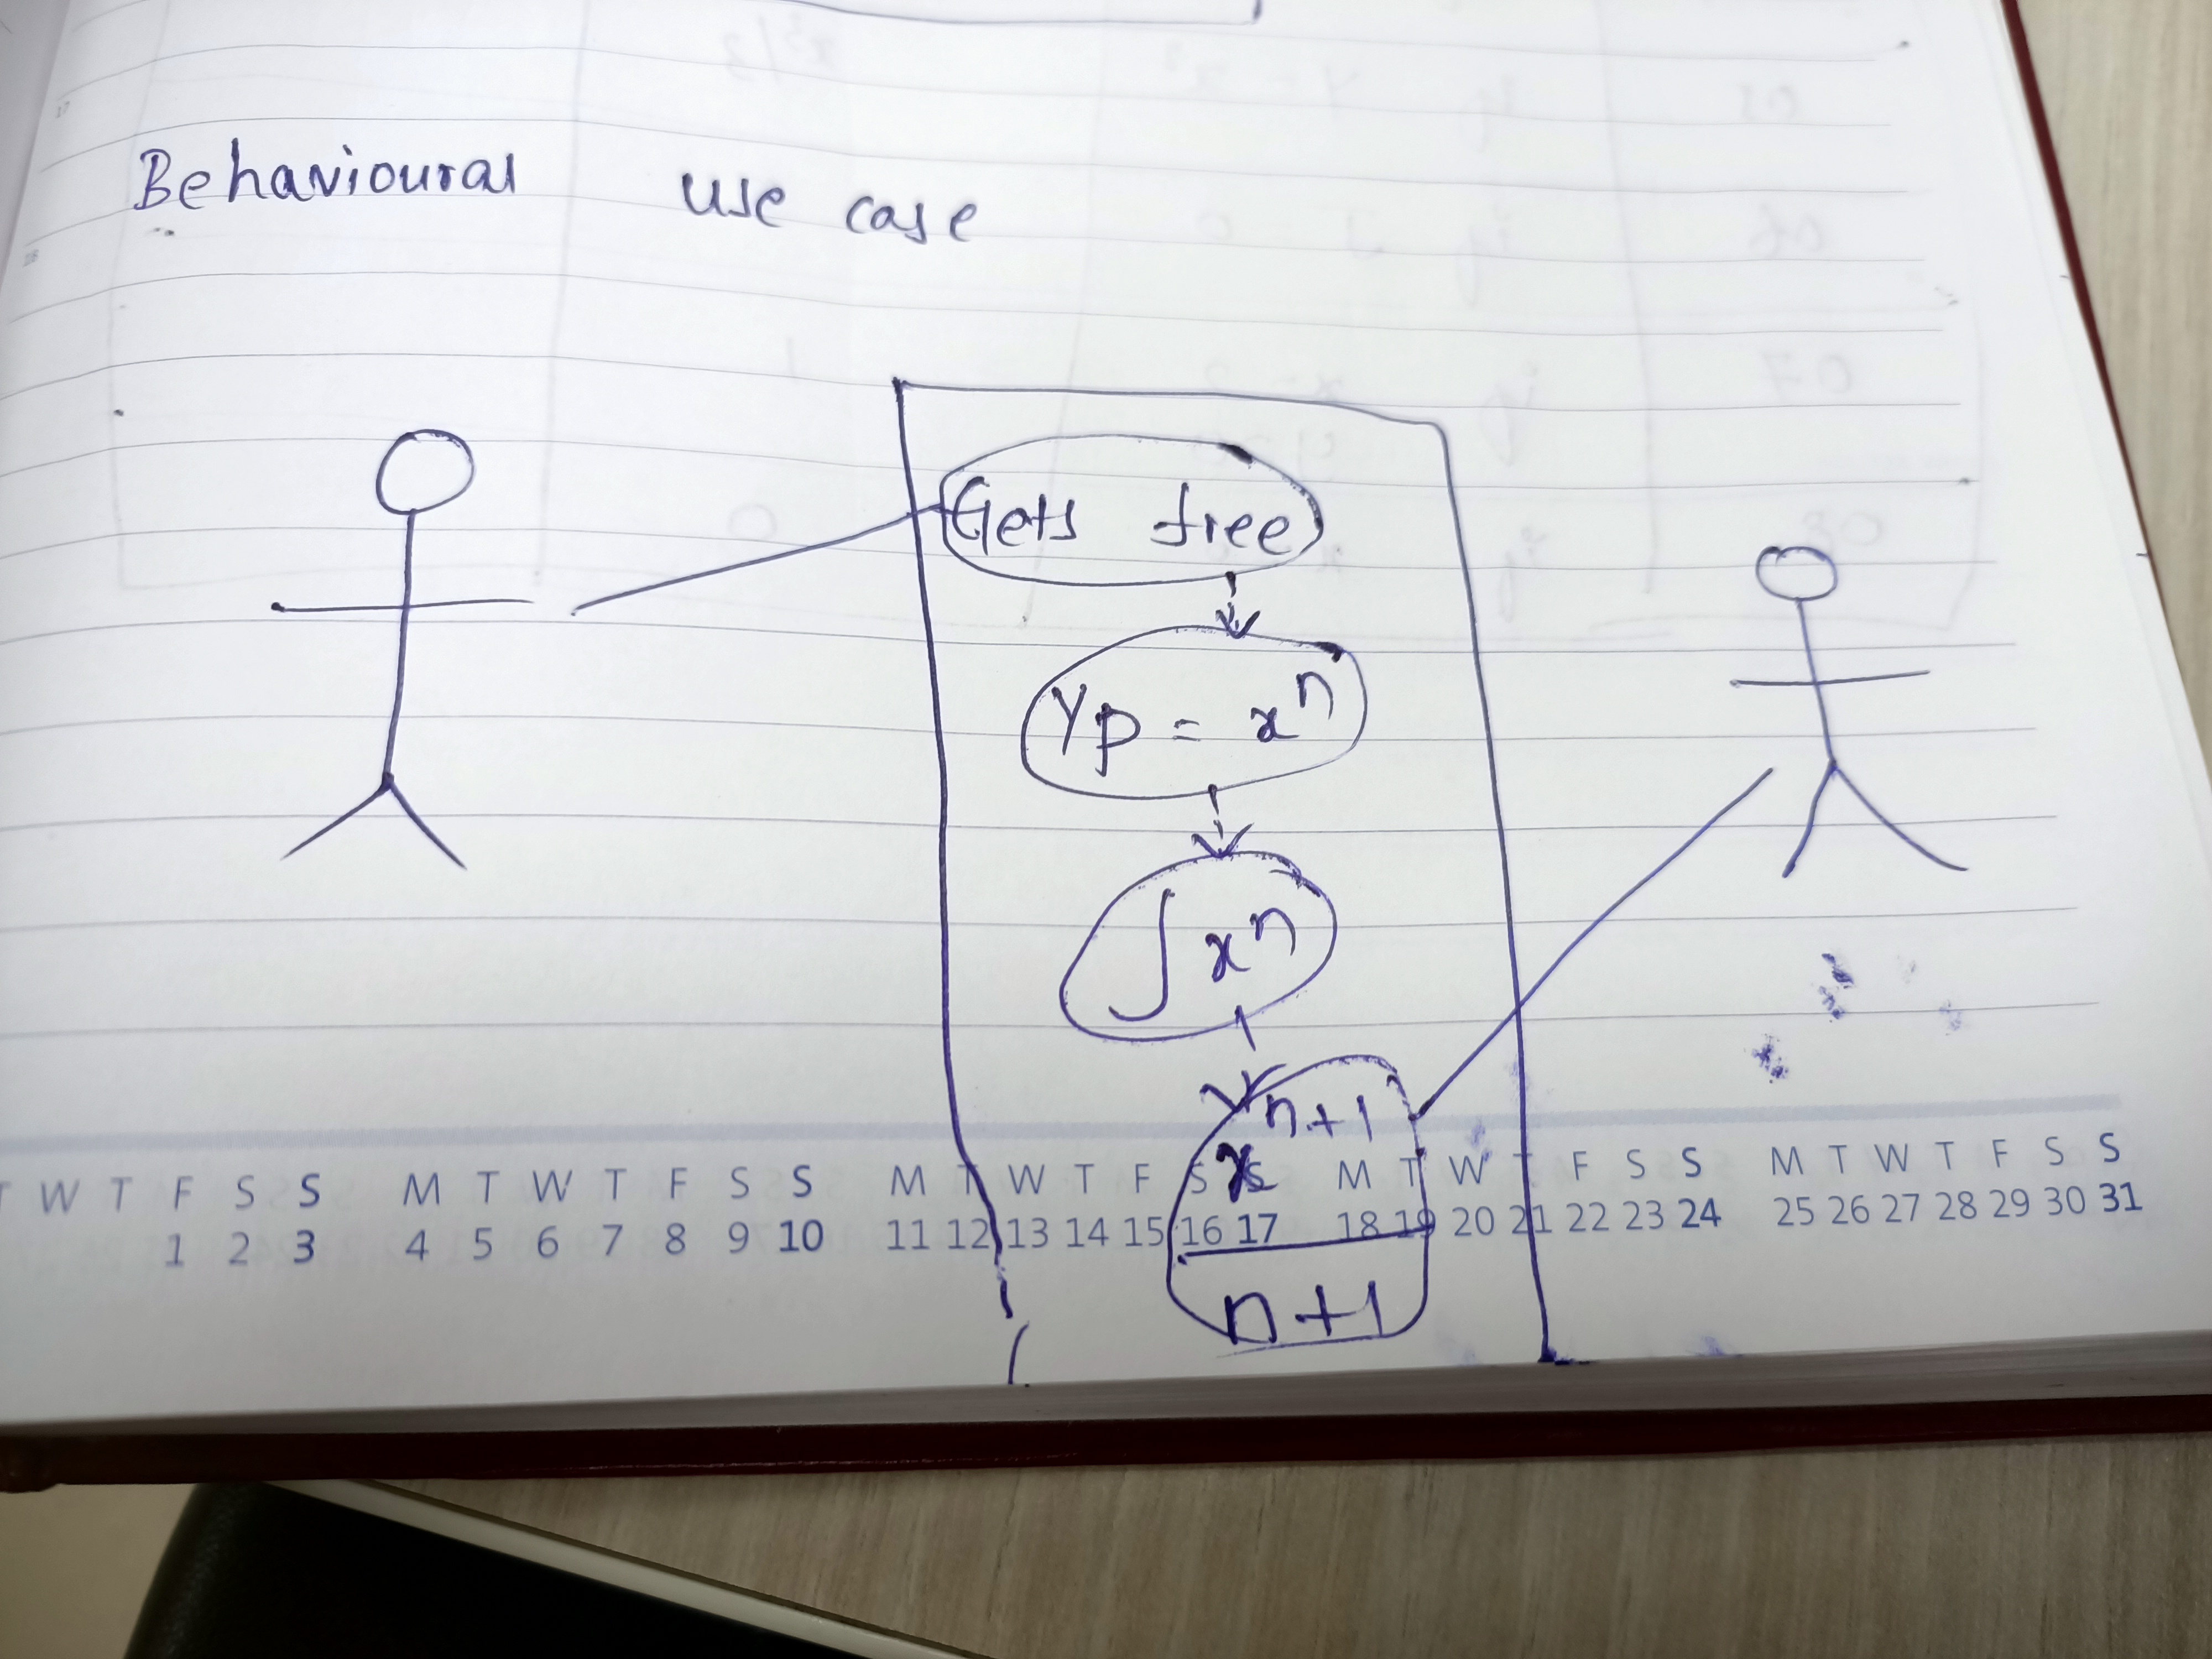 Behavioural use case
Gets free
Yp = xⁿ
∫ xⁿ
xⁿ⁺¹
n+1
T W T F S S M T W T F S S M T W T F S S M T W T F S S M T W T F S S
1 2 3 4 5 6 7 8 9 10 11 12 13 14 15 16 17 18 19 20 21 22 23 24 25 26 27 28 29 30 31